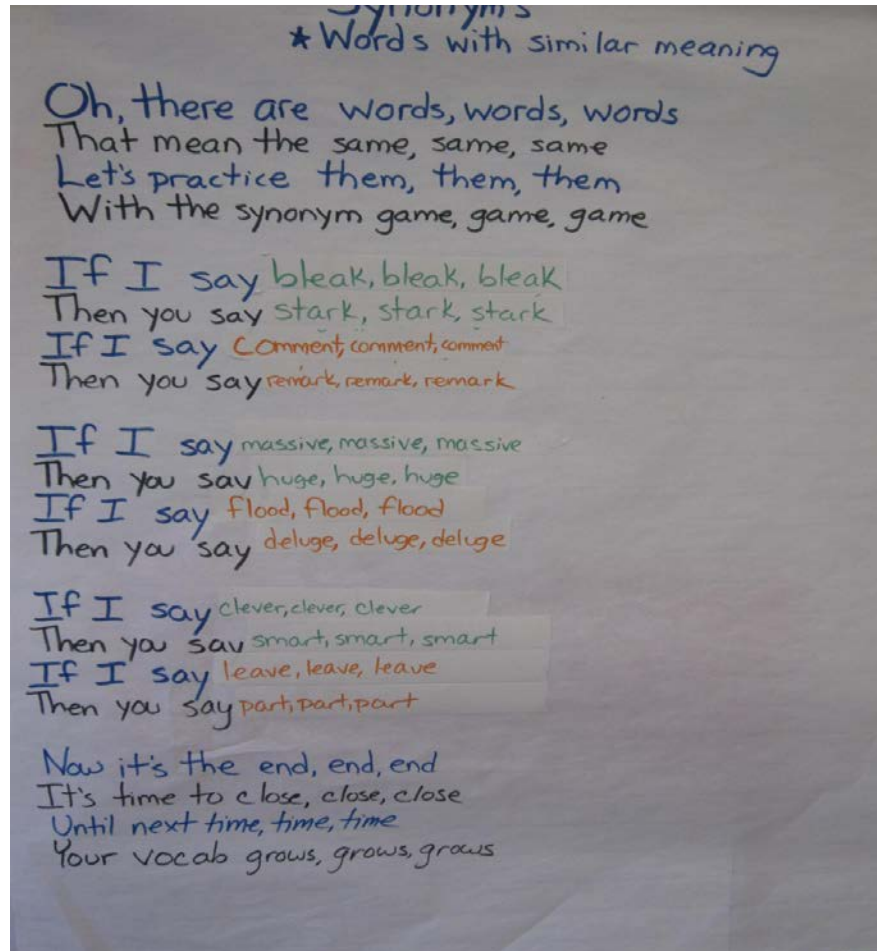 Synonyms
★ Words with similar meaning
Oh, there are words, words, words
That mean the same, same, same
Let's practice them, them, them
With the synonym game, game, game
If I say bleak, bleak, bleak
Then you say stark, stark, stark
If I say comment, comment, comment
Then you say remark, remark, remark
If I say massive, massive, massive
Then you say huge, huge, huge
If I say flood, flood, flood
Then you say deluge, deluge, deluge
If I say clever, clever, clever
Then you say smart, smart, smart
If I say leave, leave, leave
Then you say part, part, part
Now it's the end, end, end
It's time to close, close, close
Until next time, time, time
Your vocab grows, grows, grows